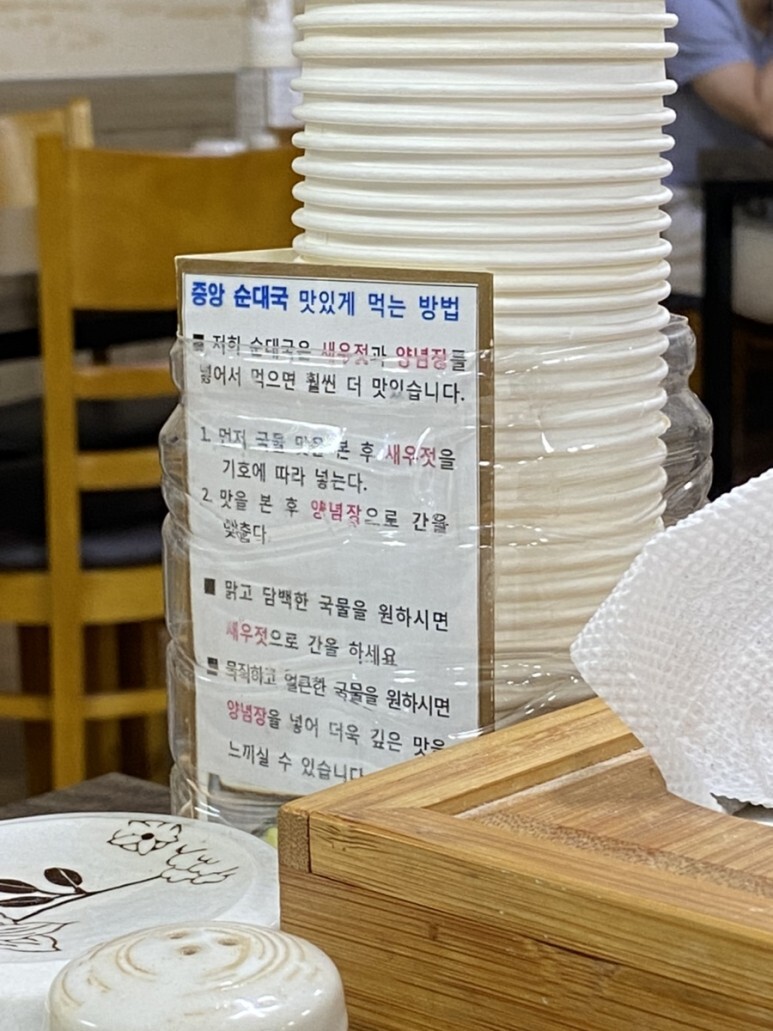 중앙 순대국 맛있게 먹는 방법
■ 저희 순대국은 새우젓과 양념장를
넣어서 먹으면 훨씬 더 맛있습니다.
1. 먼저 국물 맛을 본 후 새우젓을
기호에 따라 넣는다.
2. 맛을 본 후 양념장으로 간을
맞춥다.
■ 맑고 담백한 국물을 원하시면
새우젓으로 간을 하세요
■ 묵직하고 얼큰한 국물을 원하시면
양념장을 넣어 더욱 깊은 맛을
느끼실 수 있습니다